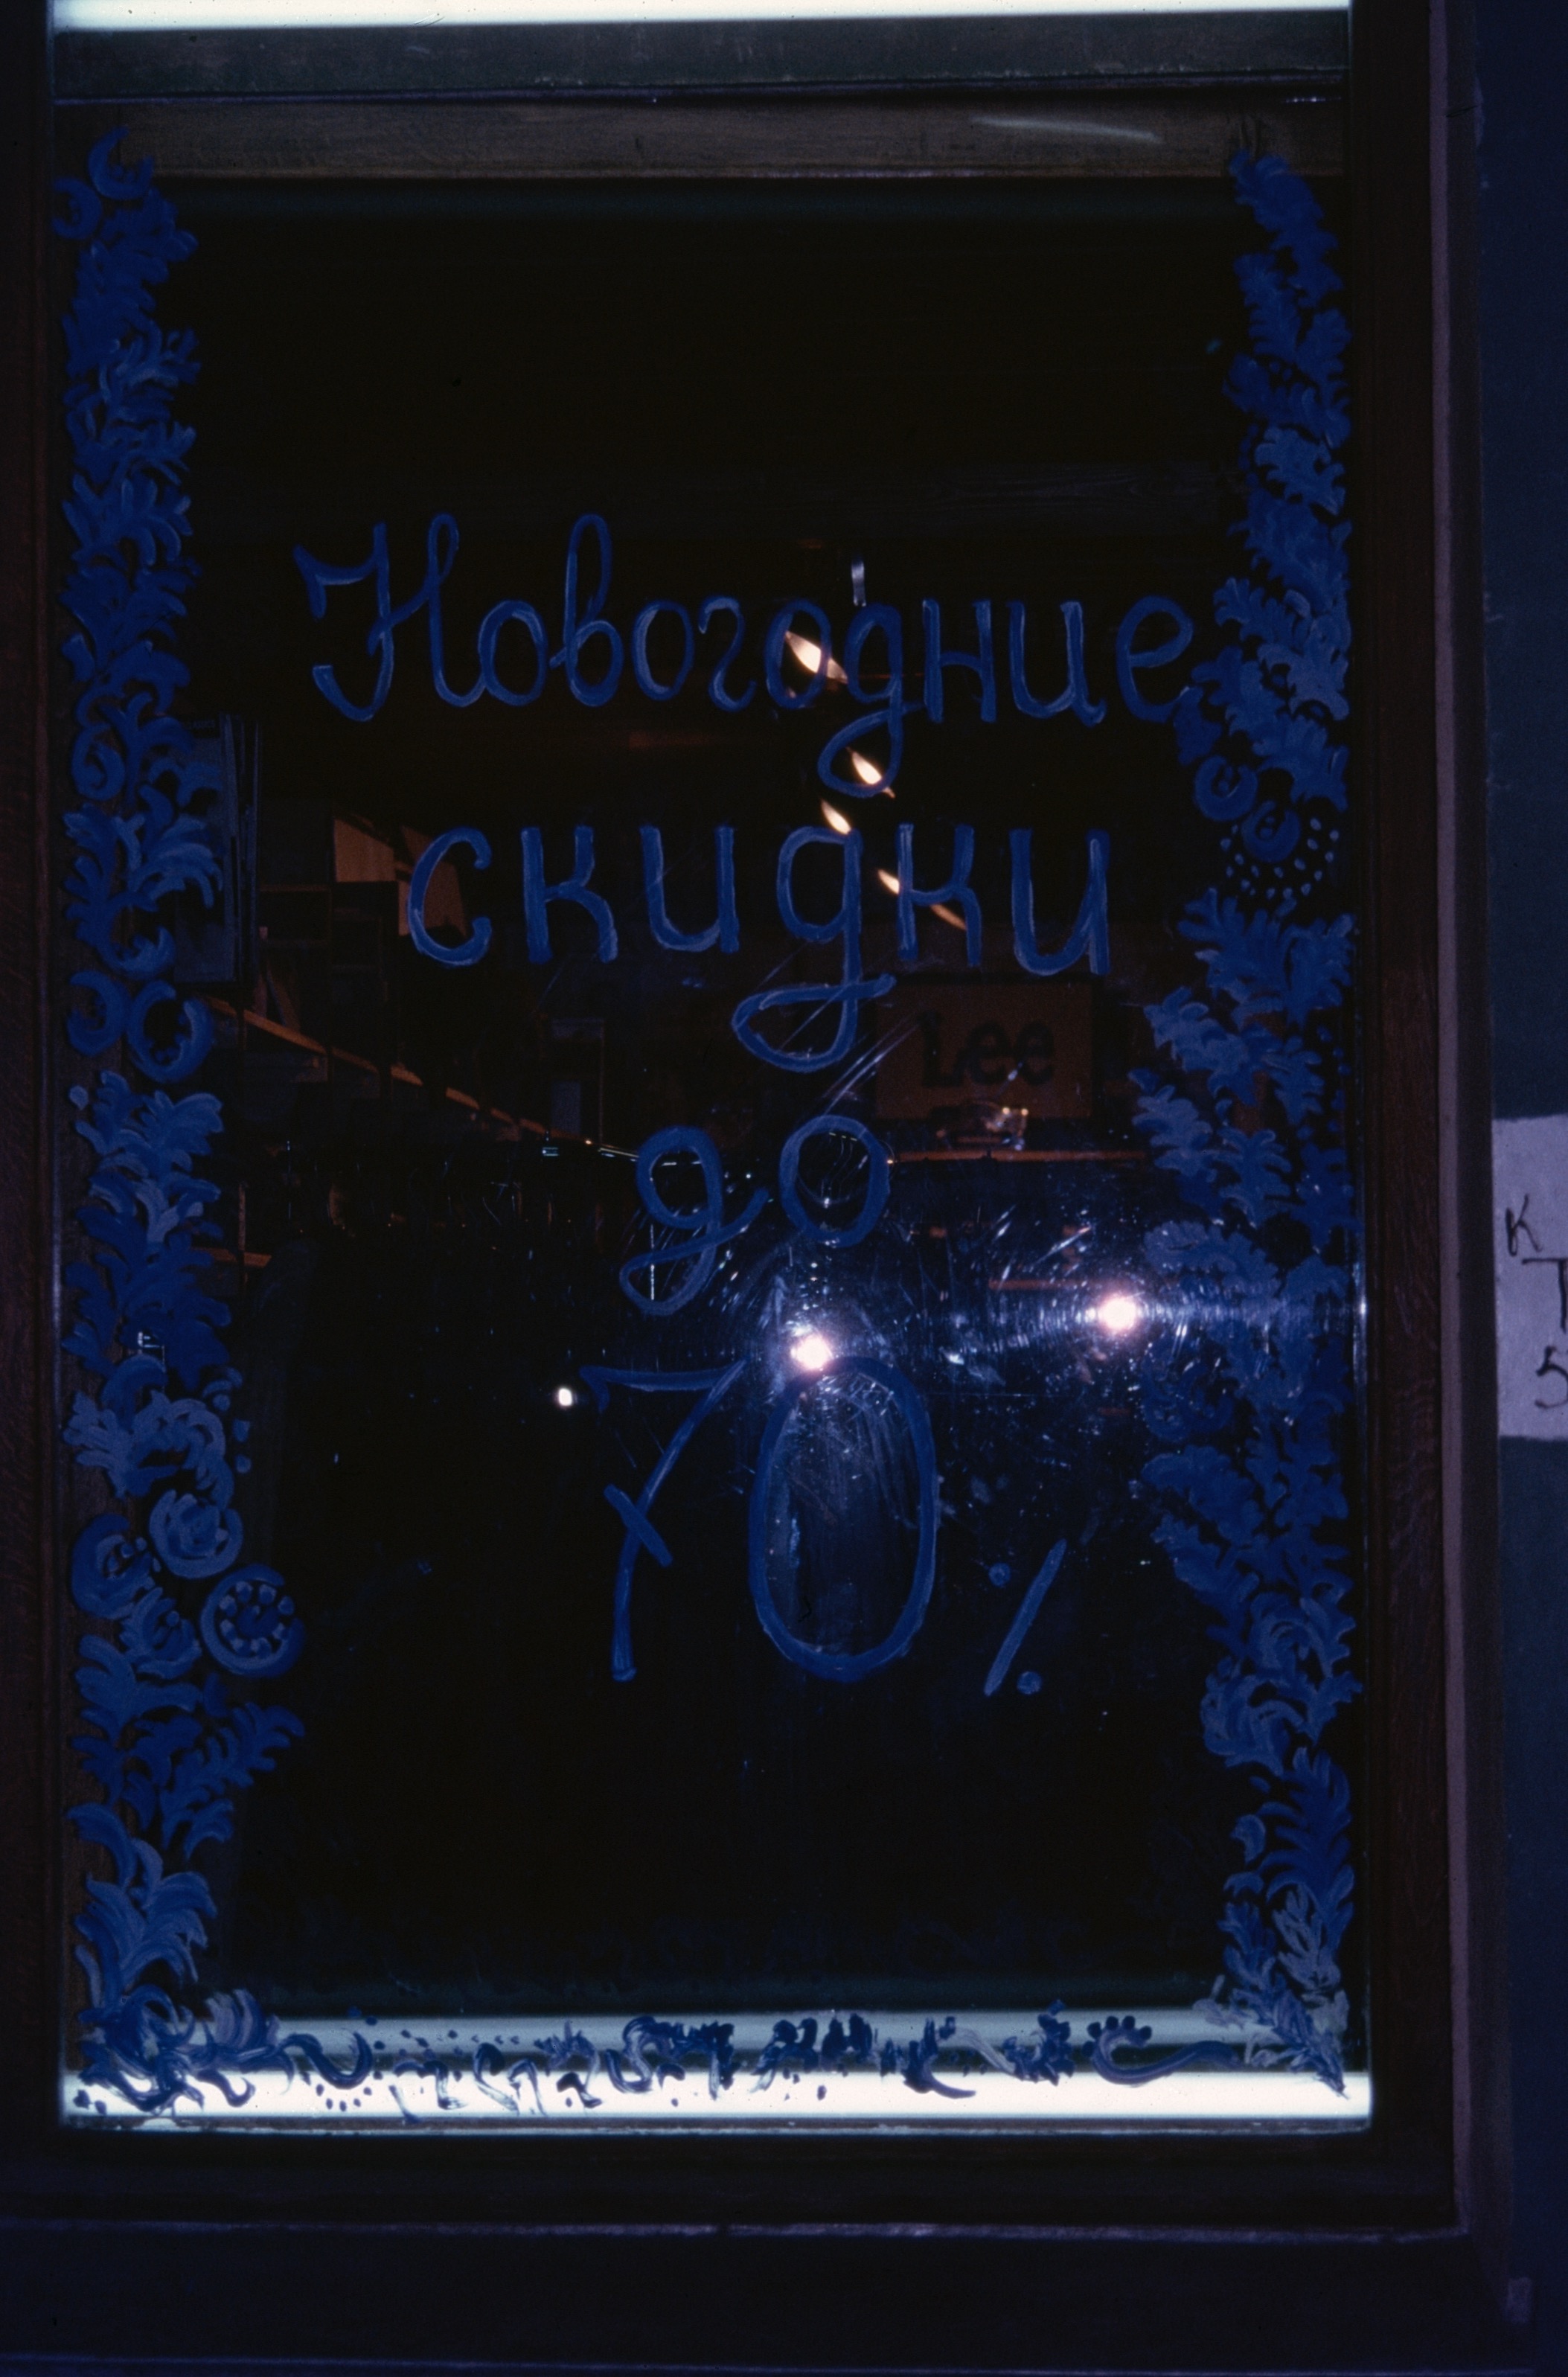 Новогодние
скидки
Lee
до
70%
К
Т
5